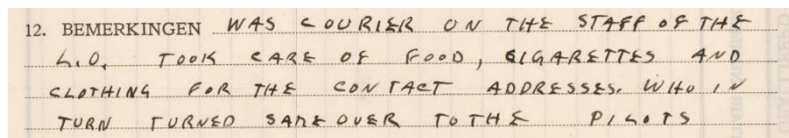 12. BEMERKINGEN WAS COURIER ON THE STAFF OF THE
L.O. TOOK CARE OF FOOD, SIGARETTES AND
CLOTHING FOR THE CONTACT ADDRESSES. WHO IN
TURN TURNED SAME OVER TO THE PILOTS